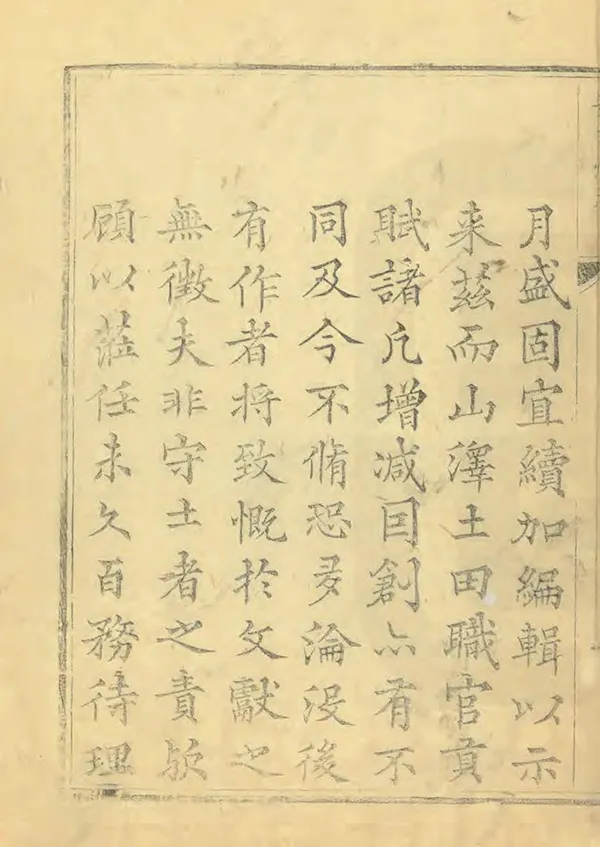 月盛固宜續加編輯以示
来茲而山澤土田職官貢
賦諸凢增減因創亦有不
同及今不脩恐多淪没後
有作者将致慨於文獻之
無徵夫非守土者之責欤
顧以蒞任未久百務待理